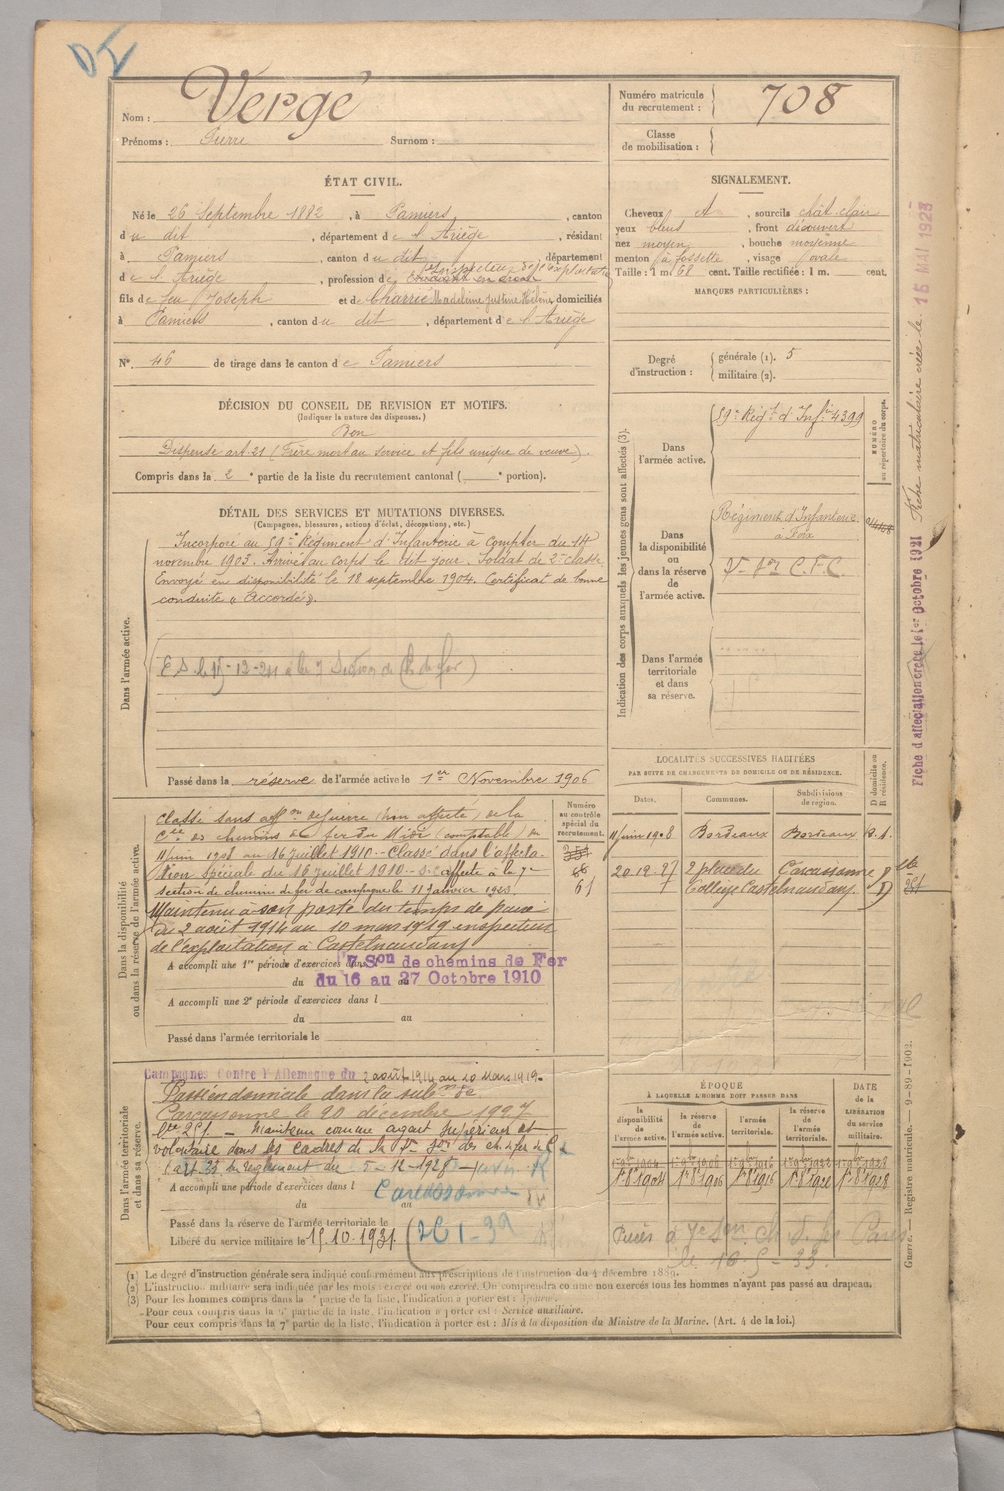 Nom : Vergé
Prénoms : Pierre Surnom :
Numéro matricule du recrutement : 708
Classe de mobilisation :
ÉTAT CIVIL.
Né le 26 Septembre 1882, à Pamiers, canton
du dit, département de l'Ariège, résidant
à Pamiers, canton du dit, département
de l'Ariège, profession de étudiant en droit
fils de feu Joseph et de Charrie Madeleine Justine Hélène, domiciliés
à Pamiers, canton du dit, département de l'Ariège
N° 46 de tirage dans le canton de Pamiers
SIGNALEMENT.
Cheveux ch, sourcils chât. clair
yeux bleus, front découvert
nez moyen, bouche moyenne
menton à fossette, visage ovale
Taille : 1 m 68 cent. Taille rectifiée : 1 m. cent.
MARQUES PARTICULIÈRES :
Degré d'instruction : générale (1). 5
militaire (2).
DÉCISION DU CONSEIL DE REVISION ET MOTIFS.
(Indiquer la nature des dispenses.)
Bon
Dispensé art. 21 (Frère mort au service et fils unique de veuve).
Compris dans la 2e partie de la liste du recrutement cantonal ( e portion).
DÉTAIL DES SERVICES ET MUTATIONS DIVERSES.
(Campagnes, blessures, actions d'éclat, décorations, etc.)
Dans l'armée active.
Incorporé au 59e Régiment d'Infanterie à compter du 14
novembre 1903. Arrivé au corps le dit jour. Soldat de 2e classe.
Envoyé en disponibilité le 18 septembre 1904. Certificat de bonne
conduite « Accordé ».
Passé dans la réserve de l'armée active le 1er Novembre 1906
Indication des corps auxquels les jeunes gens sont affectés (3).
Dans l'armée active.
59e Régt d'Infie 4399
NUMÉRO au répertoire du corps.
Dans la disponibilité ou dans la réserve de l'armée active.
Régiment d'Infanterie
à Foix
7e Son C.F.C.
Dans l'armée territoriale et dans sa réserve.
Dans la disponibilité ou dans la réserve de l'armée active.
Classé sans affon de guerre (non affecté) de la
Cie des chemins de fer du Midi (comptable) du
11 juin 1908 au 16 juillet 1910 - Classé dans l'affecta-
tion spéciale du 16 juillet 1910 - affecté à la 7e
section de chemin de fer de campagne le 11 Janvier 1923.
Maintenu à son poste du temps de paix
du 2 août 1914 au 10 mars 1919 inspecteur
de l'exploitation à Castelnaudary
Numéro au contrôle spécial du recrutement.
61
A accompli une 1re période d'exercices dans 7 Son de chemins de Fer
du 16 au 27 Octobre 1910
A accompli une 2e période d'exercices dans l
du au
Passé dans l'armée territoriale le
LOCALITÉS SUCCESSIVES HABITÉES
PAR SUITE DE CHANGEMENTS DE DOMICILE OU DE RÉSIDENCE.
Dates. Communes. Subdivisions de région. D domicile ou R résidence.
11 juin 1908 Bordeaux Bordeaux
20.12.27 2 place du Collège Castelnaudary Carcassonne
Dans l'armée territoriale et dans sa réserve.
Campagnes Contre l'Allemagne du 2 août 1914 au 10 Mars 1919.
Passé en domicile dans la subon de
Carcassonne le 20 décembre 1927
Maintenu comme agent supérieur et
volontaire dans les cadres de la 7e Son des ch. de fer de C
A accompli une période d'exercices dans l Carcassonne
du au
Passé dans la réserve de l'armée territoriale le
Libéré du service militaire le 15.10.1931
ÉPOQUE
À LAQUELLE L'HOMME DOIT PASSER DANS
la disponibilité de l'armée active. la réserve de l'armée active. l'armée territoriale. la réserve de l'armée territoriale. DATE de la LIBÉRATION du service militaire.
(1) Le degré d'instruction générale sera indiqué conformément aux prescriptions de l'instruction du 4 décembre 1889.
(2) L'instruction militaire sera indiquée par les mots : exercé ou non exercé. On comprendra comme non exercés tous les hommes n'ayant pas passé au drapeau.
(3) Pour les hommes compris dans la partie de la liste, l'indication à porter est :
Pour ceux compris dans la partie de la liste, l'indication à porter est : Service auxiliaire.
Pour ceux compris dans la 7e partie de la liste, l'indication à porter est : Mis à la disposition du Ministre de la Marine. (Art. 4 de la loi.)
Guerre. — Registre matricule. — 9-89-1902.
Fiche d'affectation créée le 1er Octobre 1921
Fiche matriculaire créée le 15 MAI 1923